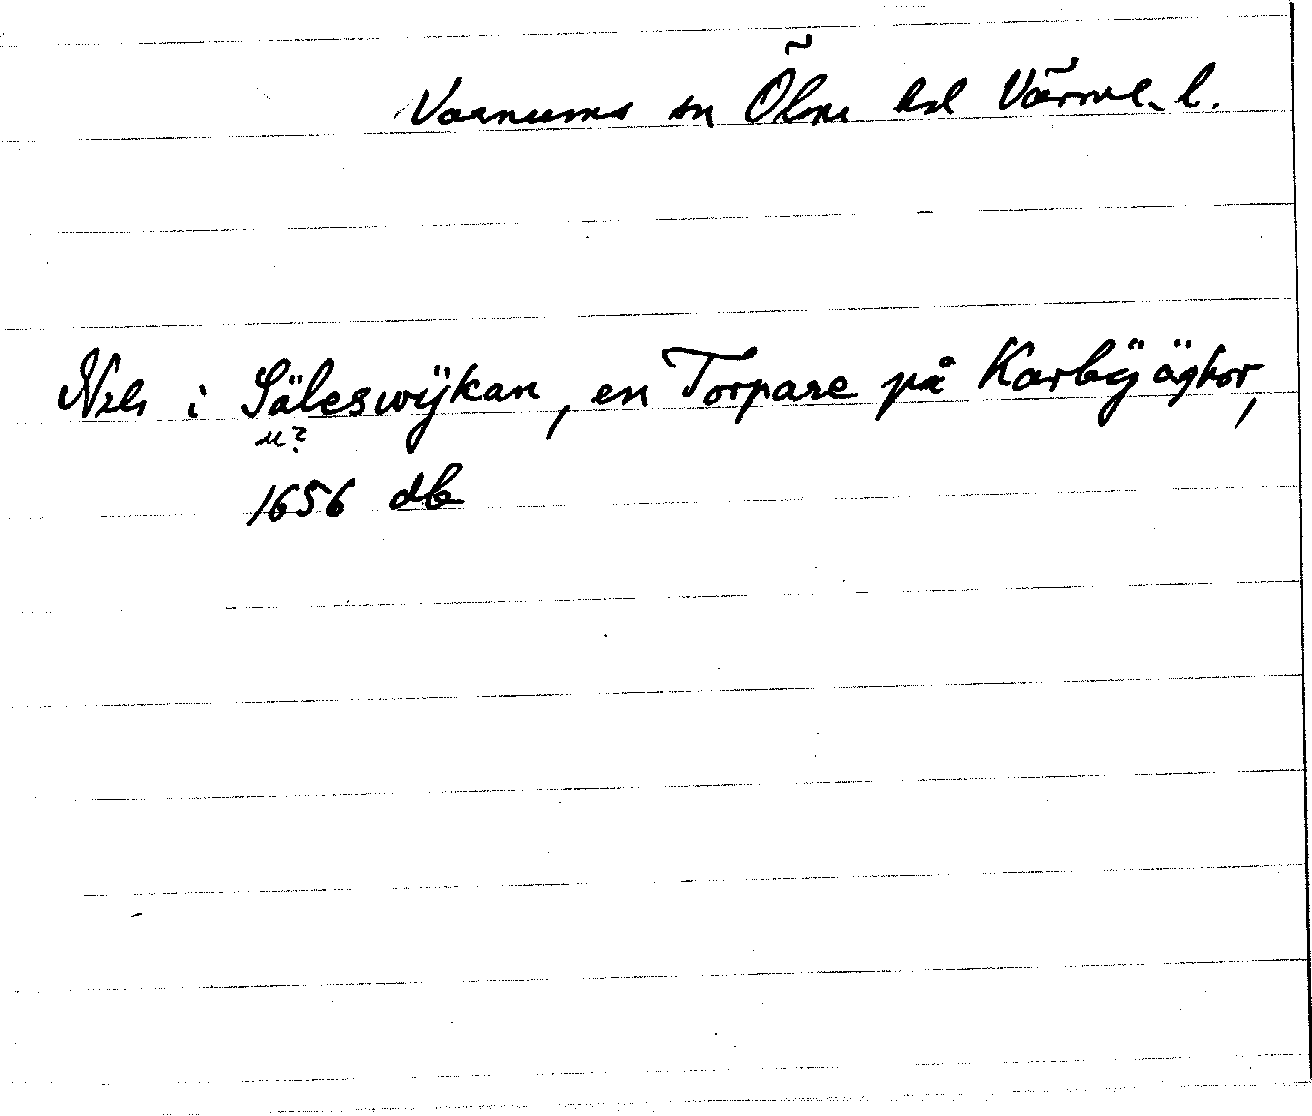 Varnums sn Ölme hd Värml. l.
Nils i Säleswÿkan, en Torpare på Karbÿ äghor,
u?
1656 db